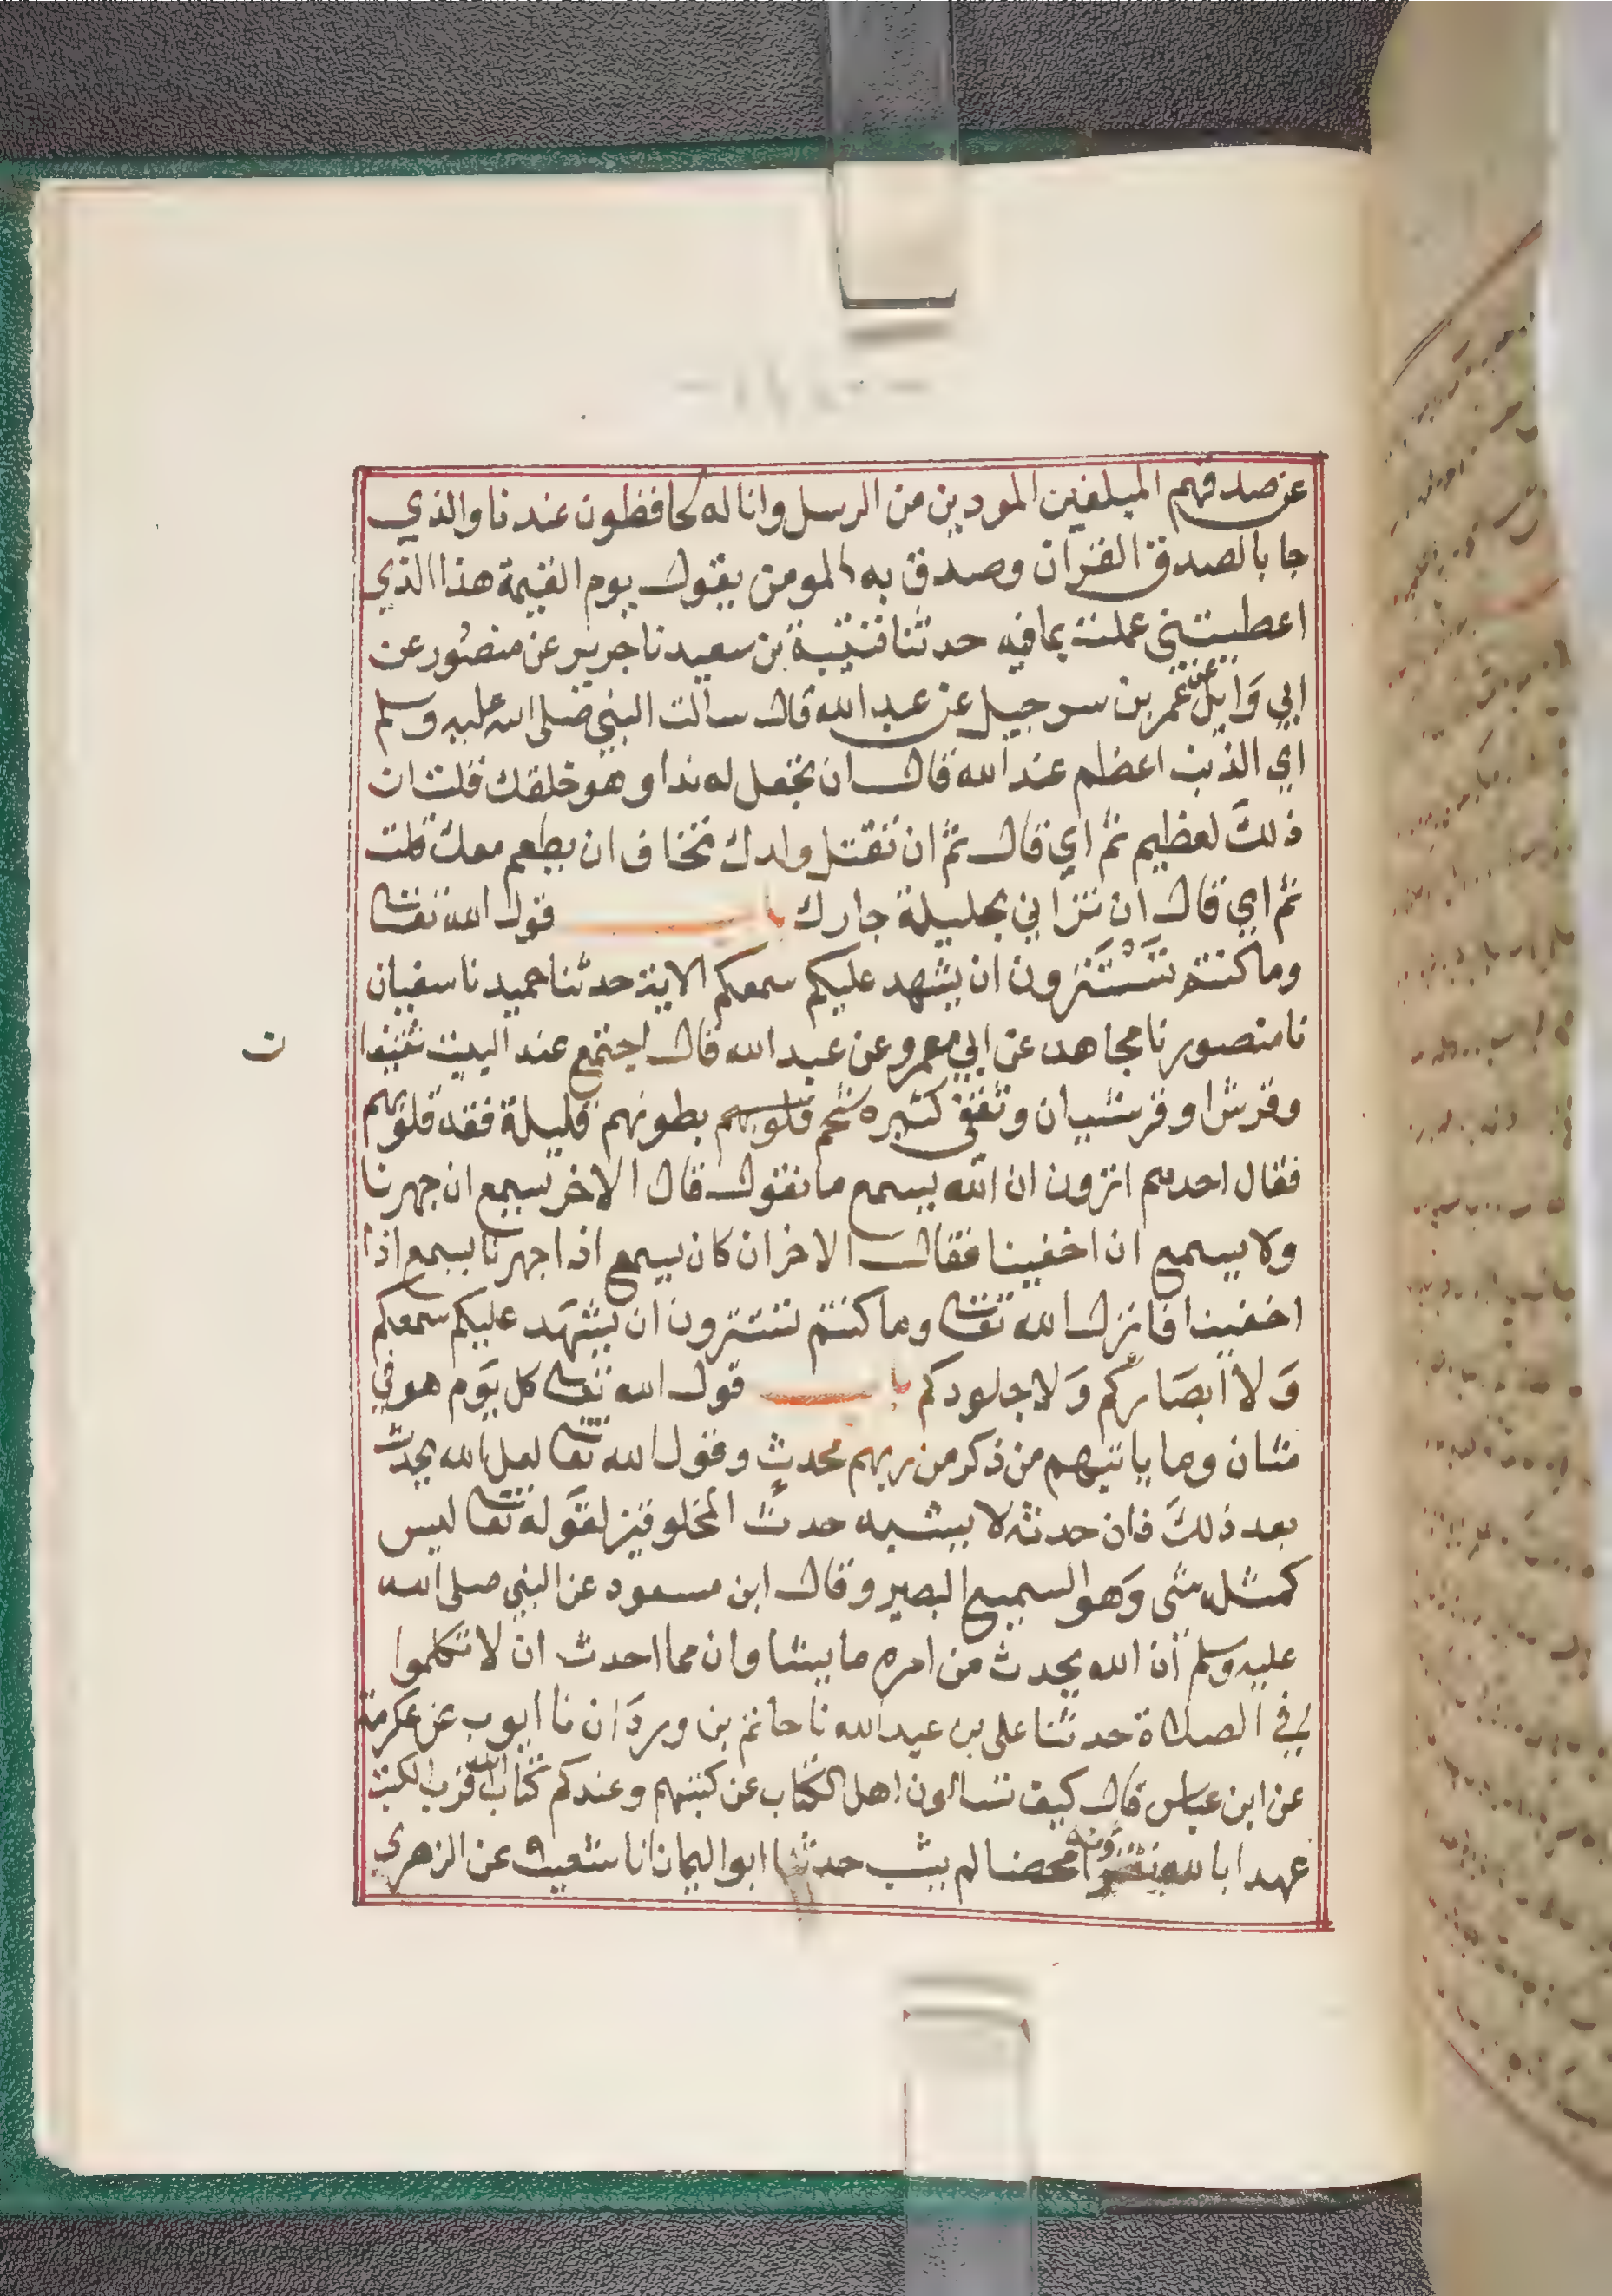 عن صدقهم المبلغين المودين من الرسل وانا له لحافظون عندنا والذي
جا بالصدق القران وصدق به المومن يقول يوم القيمة هذا الذي
اعطيتني عملت بما فيه حدثنا قتيبة بن سعيد نا جرير عن منصور عن
ابي وايل عن عمر بن سرجيل عن عبد الله قال سالت النبي صلى الله عليه وسلم
اي الذنب اعظم عند الله قال ان تجعل له ندا وهو خلقك قلت ان
ذلك لعظيم ثم اي قال ثم ان تقتل ولدك تخاف ان يطعم معك قلت
ثم اي قال ان تزاني بحليلة جارك باب قول الله تعالى
وما كنتم تستترون ان يشهد عليكم سمعكم الاية حدثنا حميد نا سفيان
نا منصور نا مجاهد عن ابي معمر وعن عبد الله قال اجتمع عند البيت ثقيفا
ن
وقرشا وقرشيان وثقفي كثيره شحم قلوبهم بطونهم قليلة فقه قلوبهم
فقال احدهم اترون ان الله يسمع ما نقول قال الاخر يسمع ان جهرنا
ولا يسمع ان اخفينا فقال الاخر ان كان يسمع اذا جهرنا يسمع اذا
اخفينا فانزل الله تعالى وما كنتم تستترون ان يشهد عليكم سمعكم
ولا ابصاركم ولا جلودكم باب قول الله تعالى كل يوم هو في
شان وما ياتيهم من ذكر من ربهم محدث وقول الله تعالى لعل الله يحدث
بعد ذلك فان حدثه لا يشبه حدث المخلوقين لقوله تعالى ليس
كمثله شي وهو السميع البصير وقال ابن مسعود عن النبي صلى الله
عليه وسلم ان الله يحدث من امره ما يشا وان مما احدث ان لا تكلموا
في الصلاة حدثنا علي بن عبد الله نا حاتم بن وردان نا ايوب عن عكرمة
عن ابن عباس قال كيف تسالون اهل الكتاب عن كتبهم وعندكم كتاب الله قرب الكتب
عهدا بالله محضا لم يشب حدثنا ابو اليمان انا شعيب عن الزهري